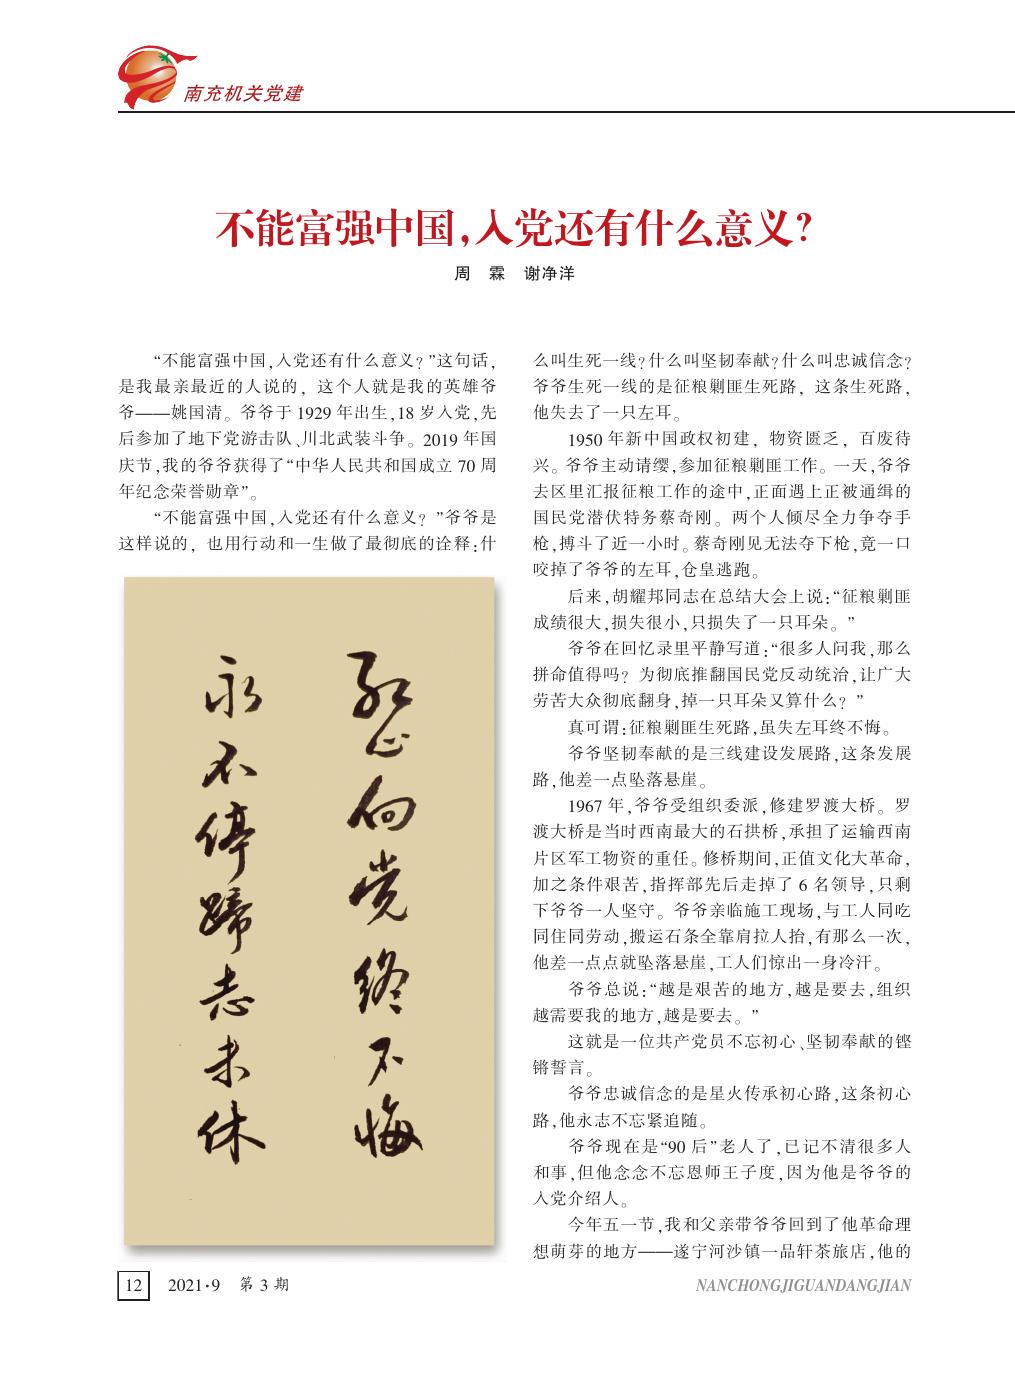 南充机关党建
不能富强中国,入党还有什么意义?
周　霖　谢净洋
“不能富强中国,入党还有什么意义?”这句话,
是我最亲最近的人说的, 这个人就是我的英雄爷
爷——姚国清。爷爷于 1929 年出生,18 岁入党,先
后参加了地下党游击队、川北武装斗争。2019 年国
庆节,我的爷爷获得了“中华人民共和国成立 70 周
年纪念荣誉勋章”。
“不能富强中国,入党还有什么意义? ”爷爷是
这样说的, 也用行动和一生做了最彻底的诠释:什
红心向党终不悔
永不停蹄志未休
么叫生死一线?什么叫坚韧奉献?什么叫忠诚信念?
爷爷生死一线的是征粮剿匪生死路, 这条生死路,
他失去了一只左耳。
1950 年新中国政权初建, 物资匮乏, 百废待
兴。爷爷主动请缨,参加征粮剿匪工作。一天,爷爷
去区里汇报征粮工作的途中,正面遇上正被通缉的
国民党潜伏特务蔡奇刚。两个人倾尽全力争夺手
枪,搏斗了近一小时。蔡奇刚见无法夺下枪,竟一口
咬掉了爷爷的左耳,仓皇逃跑。
后来,胡耀邦同志在总结大会上说:“征粮剿匪
成绩很大,损失很小,只损失了一只耳朵。”
爷爷在回忆录里平静写道:“很多人问我,那么
拼命值得吗? 为彻底推翻国民党反动统治,让广大
劳苦大众彻底翻身,掉一只耳朵又算什么? ”
真可谓:征粮剿匪生死路,虽失左耳终不悔。
爷爷坚韧奉献的是三线建设发展路,这条发展
路,他差一点坠落悬崖。
1967 年,爷爷受组织委派,修建罗渡大桥。罗
渡大桥是当时西南最大的石拱桥,承担了运输西南
片区军工物资的重任。修桥期间,正值文化大革命,
加之条件艰苦,指挥部先后走掉了 6 名领导,只剩
下爷爷一人坚守。爷爷亲临施工现场,与工人同吃
同住同劳动,搬运石条全靠肩拉人抬,有那么一次,
他差一点点就坠落悬崖,工人们惊出一身冷汗。
爷爷总说:“越是艰苦的地方,越是要去,组织
越需要我的地方,越是要去。”
这就是一位共产党员不忘初心、坚韧奉献的铿
锵誓言。
爷爷忠诚信念的是星火传承初心路,这条初心
路,他永志不忘紧追随。
爷爷现在是“90 后”老人了,已记不清很多人
和事,但他念念不忘恩师王子度,因为他是爷爷的
入党介绍人。
今年五一节,我和父亲带爷爷回到了他革命理
想萌芽的地方——遂宁河沙镇一品轩茶旅店,他的
12　2021·9　第 3 期
NANCHONGJIGUANDANGJIAN